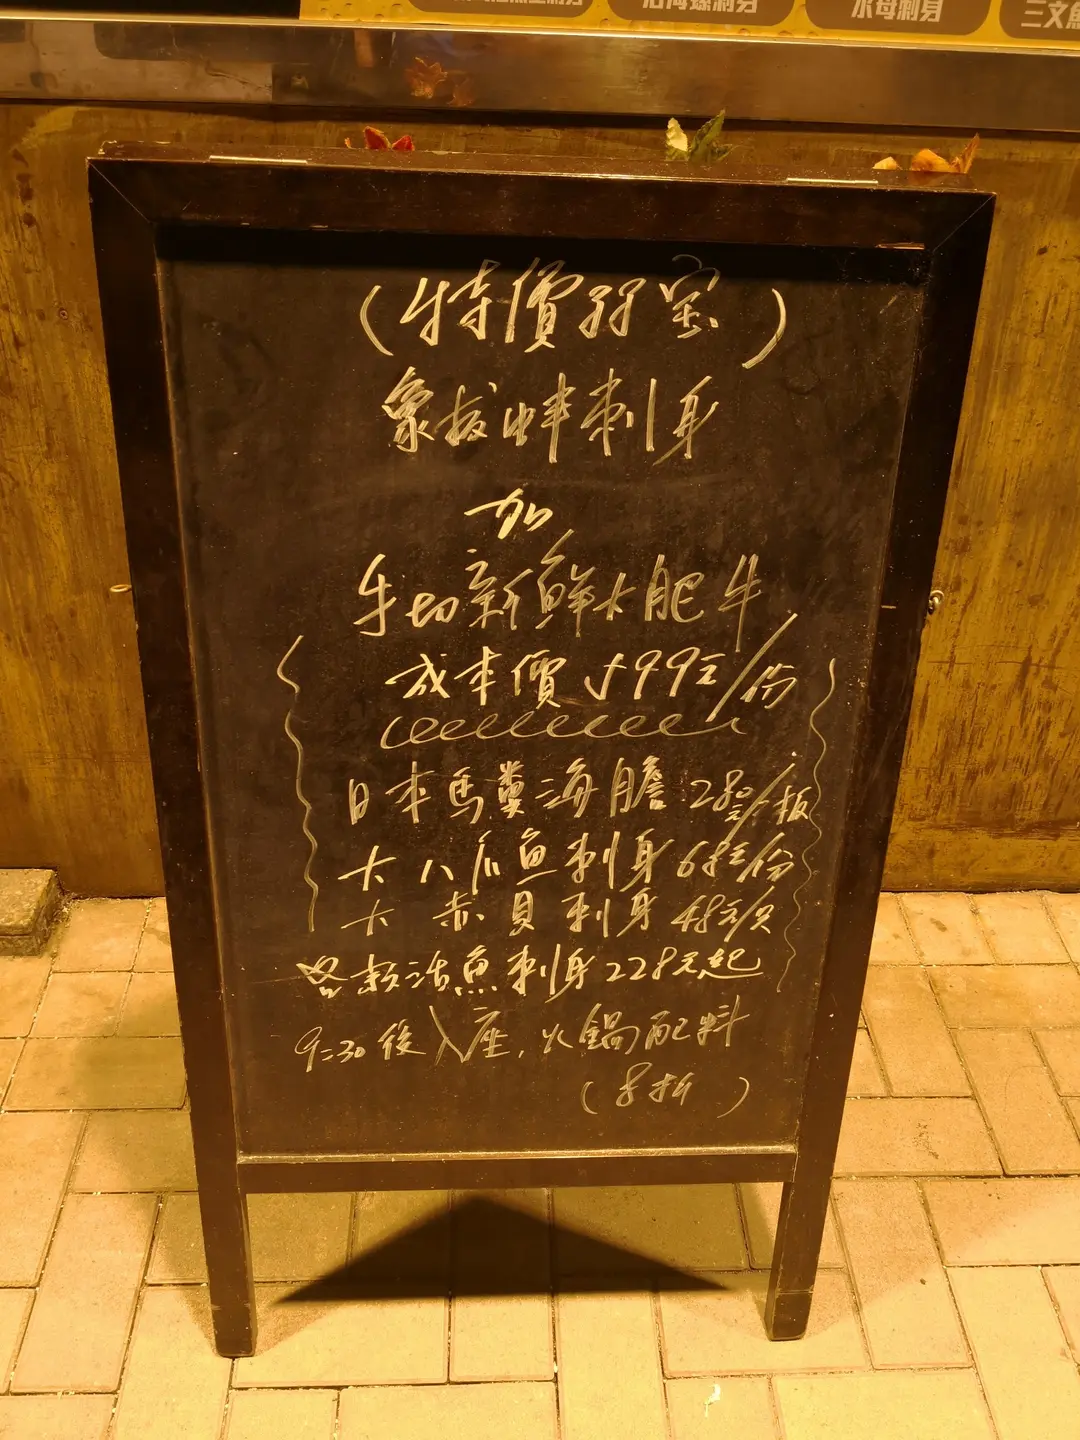 水母刺身
三文魚
(特價孖寶)
象拔蚌刺身
加
手切新鮮大肥牛
成本價$99元/份
日本馬糞海膽 280元/板
大八爪魚刺身68元份
大赤貝刺身48元/只
各款活魚刺身228元起
9:30後入座,火鍋配料
(8折)